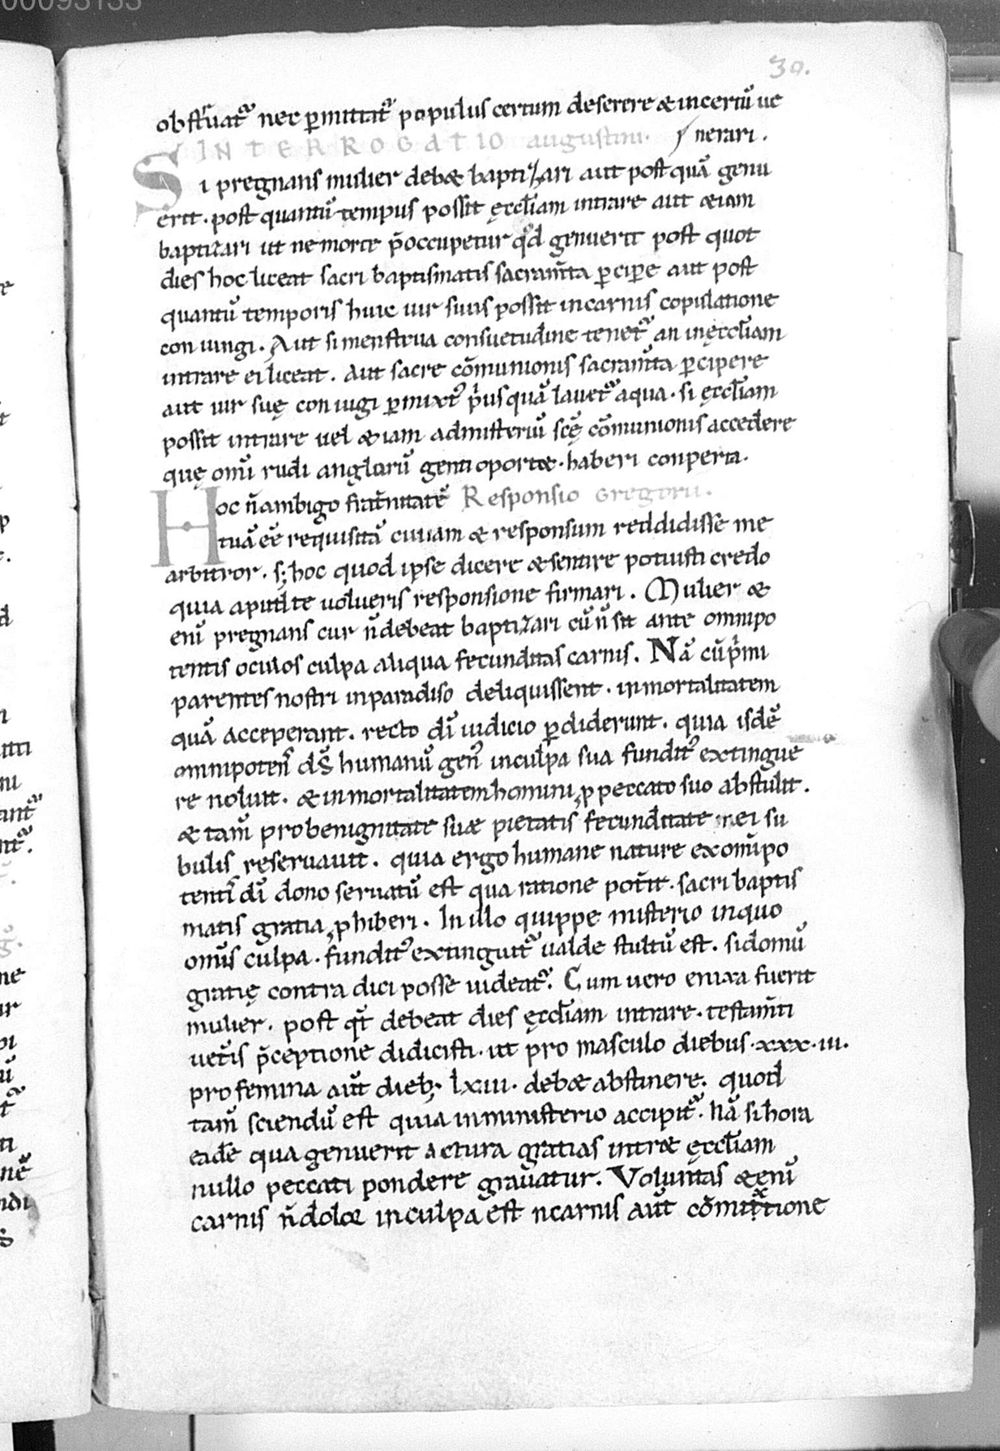 00093133
30.
obſeruat᷑ nec ꝑmittat᷑ populus certum deserere & incertū ue
INTERROGATIO augustini. nerari.
Si pregnans mulier deb& baptizari aut postquā genu
erit. post quantū tempus possit ęccl̄iam intrare aut &iam
baptizari ut ne morte p̄occupetur qd̄ genuerit post quot
dies hoc liceat sacri baptismatis sacram̄ta ꝑcipe aut post
quantū temporis huic uir suus possit in carnis copulatione
con iungi. Aut si menstrua consuetudine tenet᷑ an in ęccl̄iam
intrare ei liceat. Aut sacre cōmunionis sacram̄ta ꝑcipere
aut uir suę coniugi ꝑmixt᷒ p̄usquā lauet᷑ aqua. si ęccl̄iam
possit intrare uel &iam ad misteriū scę̄ cōmunionis accedere
quę omī rudi anglorū genti oport&. haberi conperta.
Hoc n̄ ambigo frat̄nitatē Responsio Gregorii.
tuā eē requisitā cui iam & responsum reddidisse me
arbitror. sꝫ hoc quod ipse dicere & sentire potuisti credo
quia aput te uolueris responsione firmari. Mulier &
enī pregnans cur n̄ debeat baptizari cū n̄ sit ante omnipo
tentis oculos culpa aliqua fecunditas carnis. Nā cū p̄mi
parentes nostri in paradiso deliquissent. inmortalitatem
quā acceperant. recto dī iudicio ꝑdiderunt. quia isdē
omnipoten̄ dS̄ humanū gen᷒ in culpa sua fundit᷒ extingue
re noluit. & inmortalitatem homini ꝓ peccato suo abstulit.
& tam̄ pro benignitate suæ pietatis fecunditate ei su
bulis reseruauit. quia ergo humane nature ex om̄ipo
tentī dī dono seruatū est qua ratione pot̄it. sacri baptis
matis gratia ꝓhiberi. In illo quippe misterio in quo
omīs culpa. fundit᷒ extinguit᷑ ualde stultū est. si donū
gratię contra dici posse uideat᷑. Cum uero enixa fuerit
mulier. post qt̄ debeat dies ęccl̄iam intrare. testam̄ti
uet̄is p̄ceptione didicisti. ut pro masculo diebus. xxx. iii.
pro femina aūt dieb;. lxiii. deb& abstinere. quod
tam̄ sciendū est quia in ministerio accipit᷑. Nā si hora
eadē qua genuerit actura gratias intr& ęccl̄iam
nullo peccati pondere grauatur. Volun̄tas & enī
carnis n̄ dolor in culpa est n carnis aūt cōmixtione